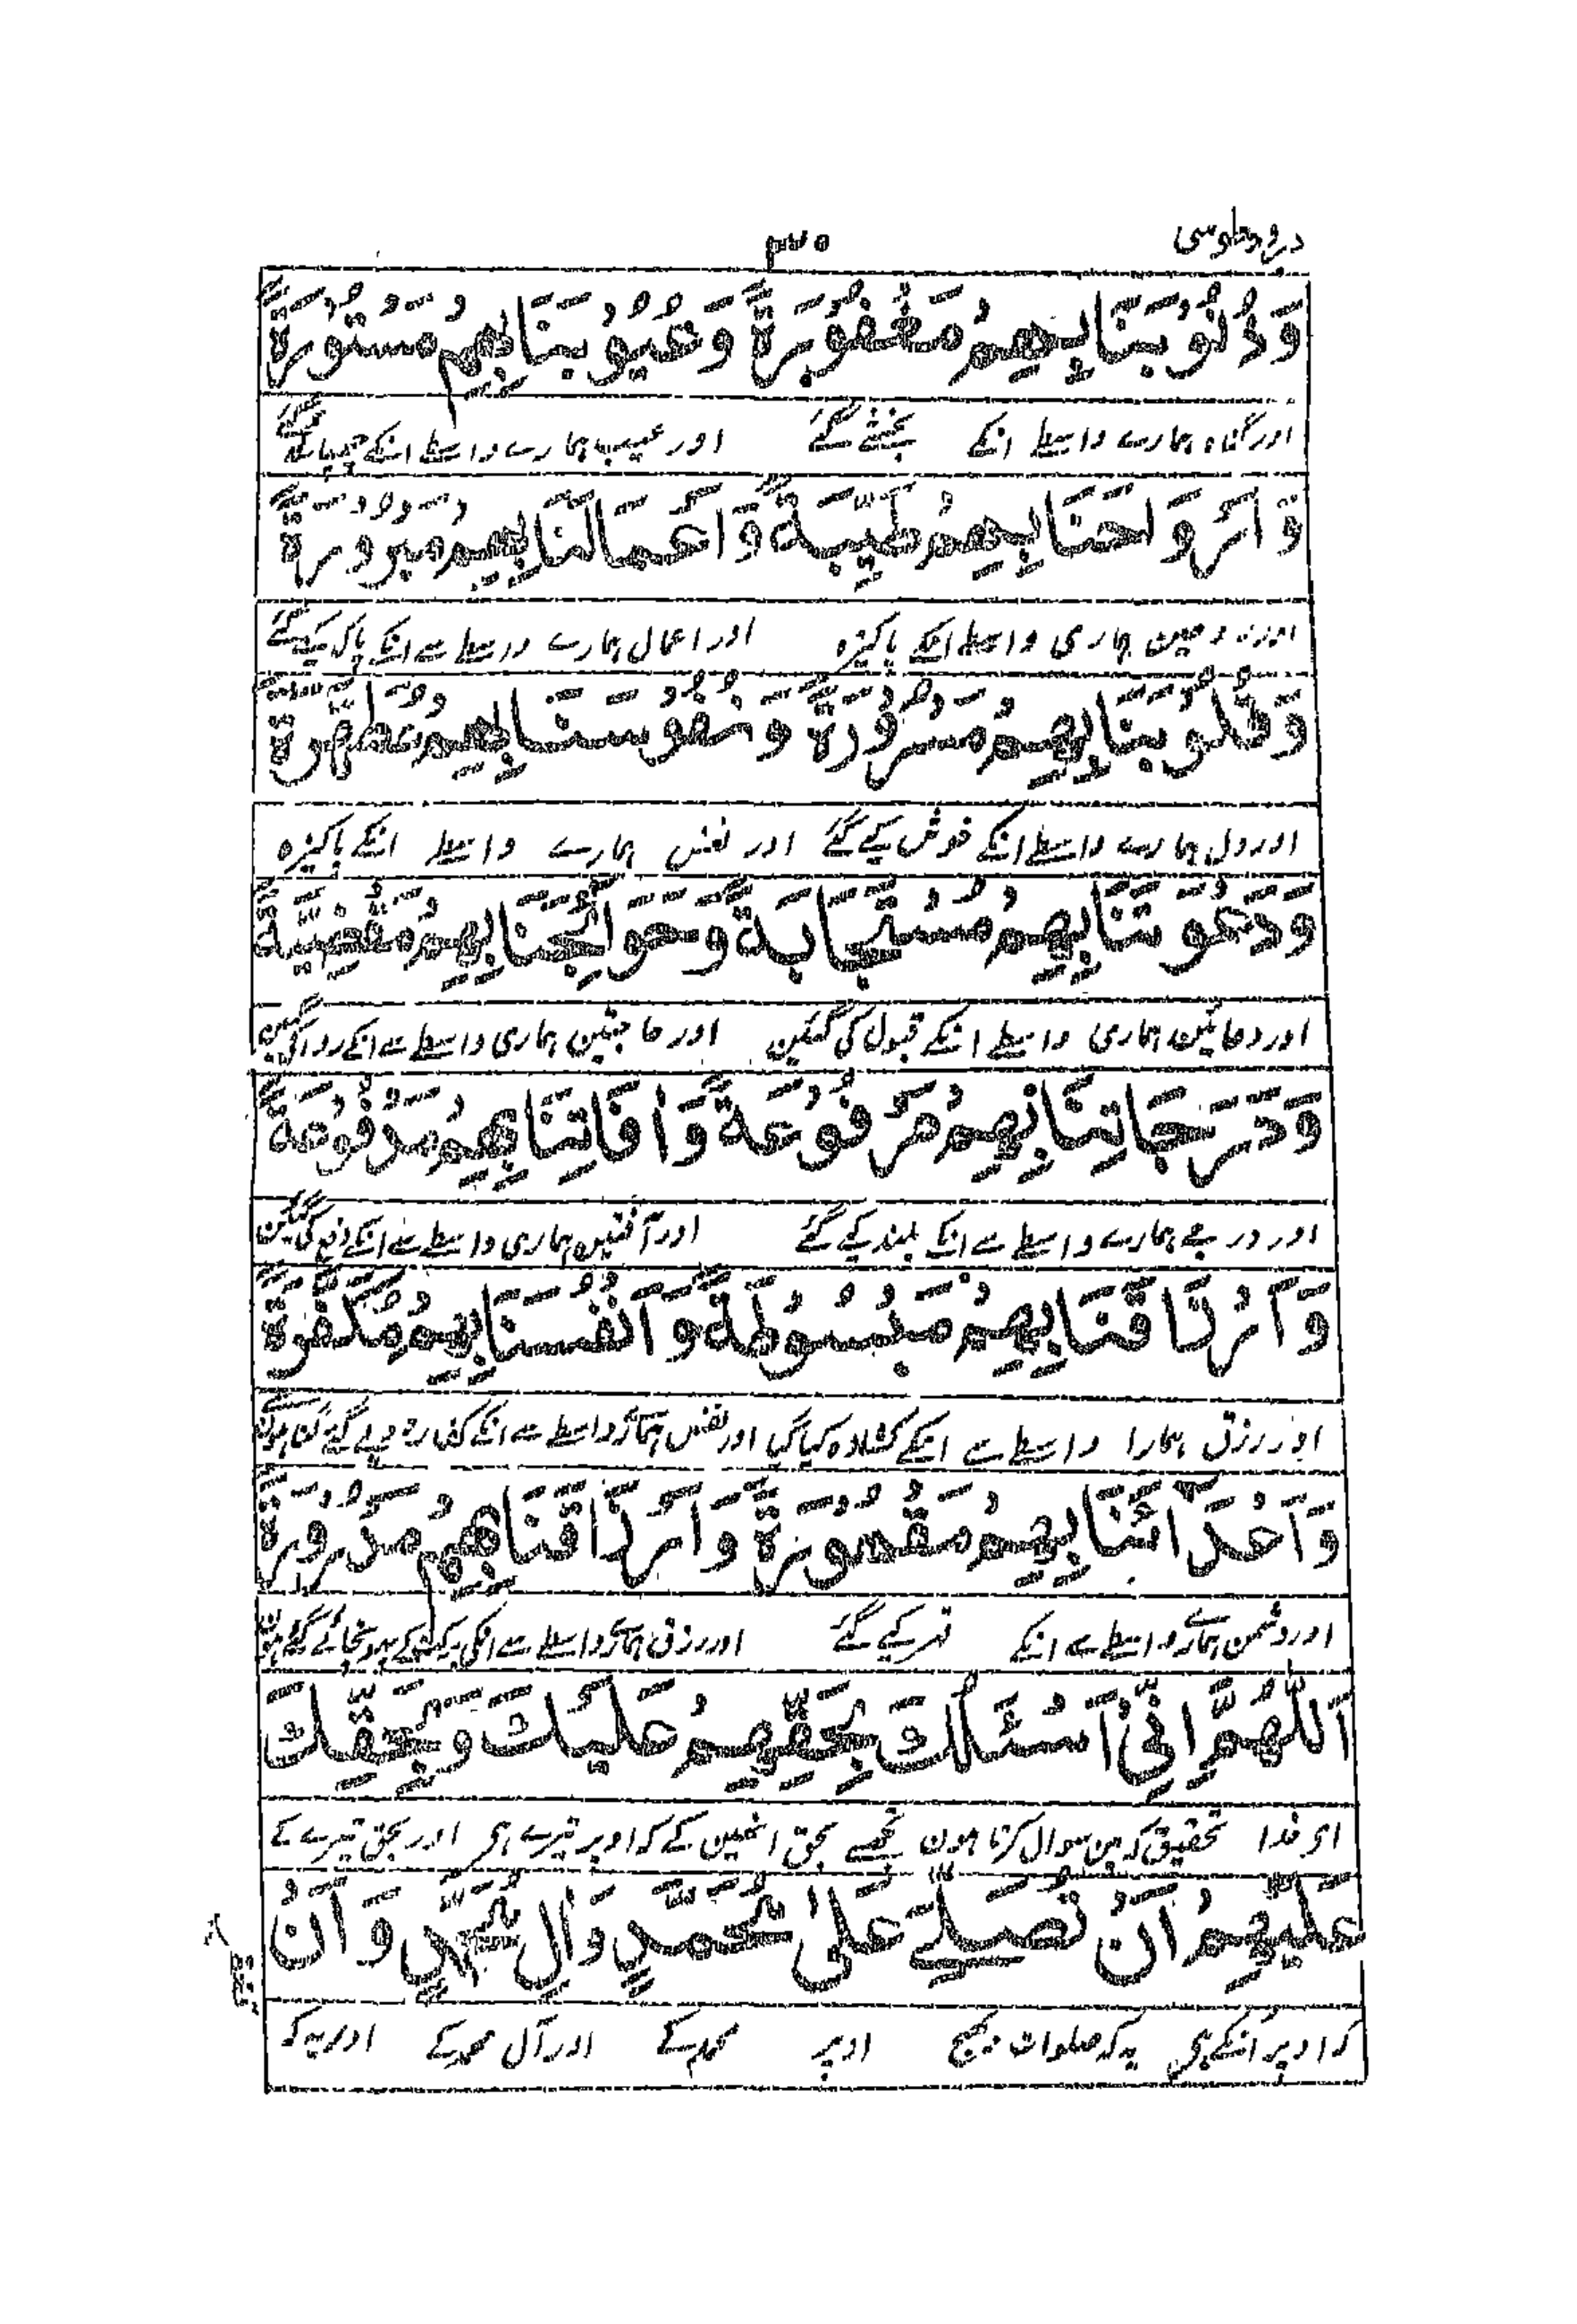 درود طوسی ۳۰
وَذُنُوْبَنَا بِهِمْ مَغْفُوْرَةً وَعُيُوْبَنَا بِهِمْ مَسْتُوْرَةً
اور گناہ ہمارے واسطے انکے بخشے گئے اور عیب ہمارے واسطے انکے چھپائے گئے
وَاَرْوَاحَنَا بِهِمْ طَيِّبَةً وَّاَعْمَالَنَا بِهِمْ مَبْرُوْرَةً
اور روحین ہماری واسطے انکے پاکیزہ اور اعمال ہمارے واسطے سے انکے پاک کیے گئے
وَقُلُوْبَنَا بِهِمْ مَسْرُوْرَةً وَنُفُوْسَنَا بِهِمْ مُطَهَّرَةً
اور دل ہمارے واسطے انکے خوش کیے گئے اور نفس ہمارے واسطے انکے پاکیزہ
وَدَعْوَتَنَا بِهِمْ مُسْتَجَابَةً وَحَوَائِجَنَا بِهِمْ مَقْضِيَّةً
اور دعائین ہماری واسطے انکے قبول کی گئین اور حاجتین ہماری واسطے سے انکے روا کی گئین
وَدَرَجَاتِنَا بِهِمْ مَرْفُوْعَةً وَاٰفَاتِنَا بِهِمْ مَدْفُوْعَةً
اور درجے ہمارے واسطے سے انکے بلند کیے گئے اور آفتین ہماری واسطے سے انکے دفع کی گئین
وَاَرْزَاقَنَا بِهِمْ مَبْسُوْطَةً وَّاَنْفُسَنَا بِهِمْ مُكَفَّرَةً
اور رزق ہمارا واسطے سے انکے کشادہ کیا گیا اور نفس ہمارے واسطے سے انکے کفارہ دیے گئے
وَاَعْدَائَنَا بِهِمْ مَقْهُوْرَةً وَاَرْزَاقَنَا بِهِمْ مَدْرُوْرَةً
اور دشمن ہمارے واسطے سے انکے قہر کیے گئے اور رزق ہمارے واسطے سے انکی برکت کے پہونچائے گئے ہون
اَللّٰهُمَّ اِنِّيْ اَسْئَلُكَ بِحَقِّهِمْ عَلَيْكَ وَبِحَقِّكَ
ای خدا تحقیق کہ مین سوال کرتا ہون تجھسے بحق انھین کے کہ اوپر تیرے ہی اور بحق تیرے کے
عَلَيْهِمْ اَنْ تُصَلِّيَ عَلٰى مُحَمَّدٍ وَاٰلِ مُحَمَّدٍ وَاَنْ
کہ اوپر انکے ہی یہ کہ صلوات بھیج اوپر محمد کے اور آل محمد کے اور یہ کہ